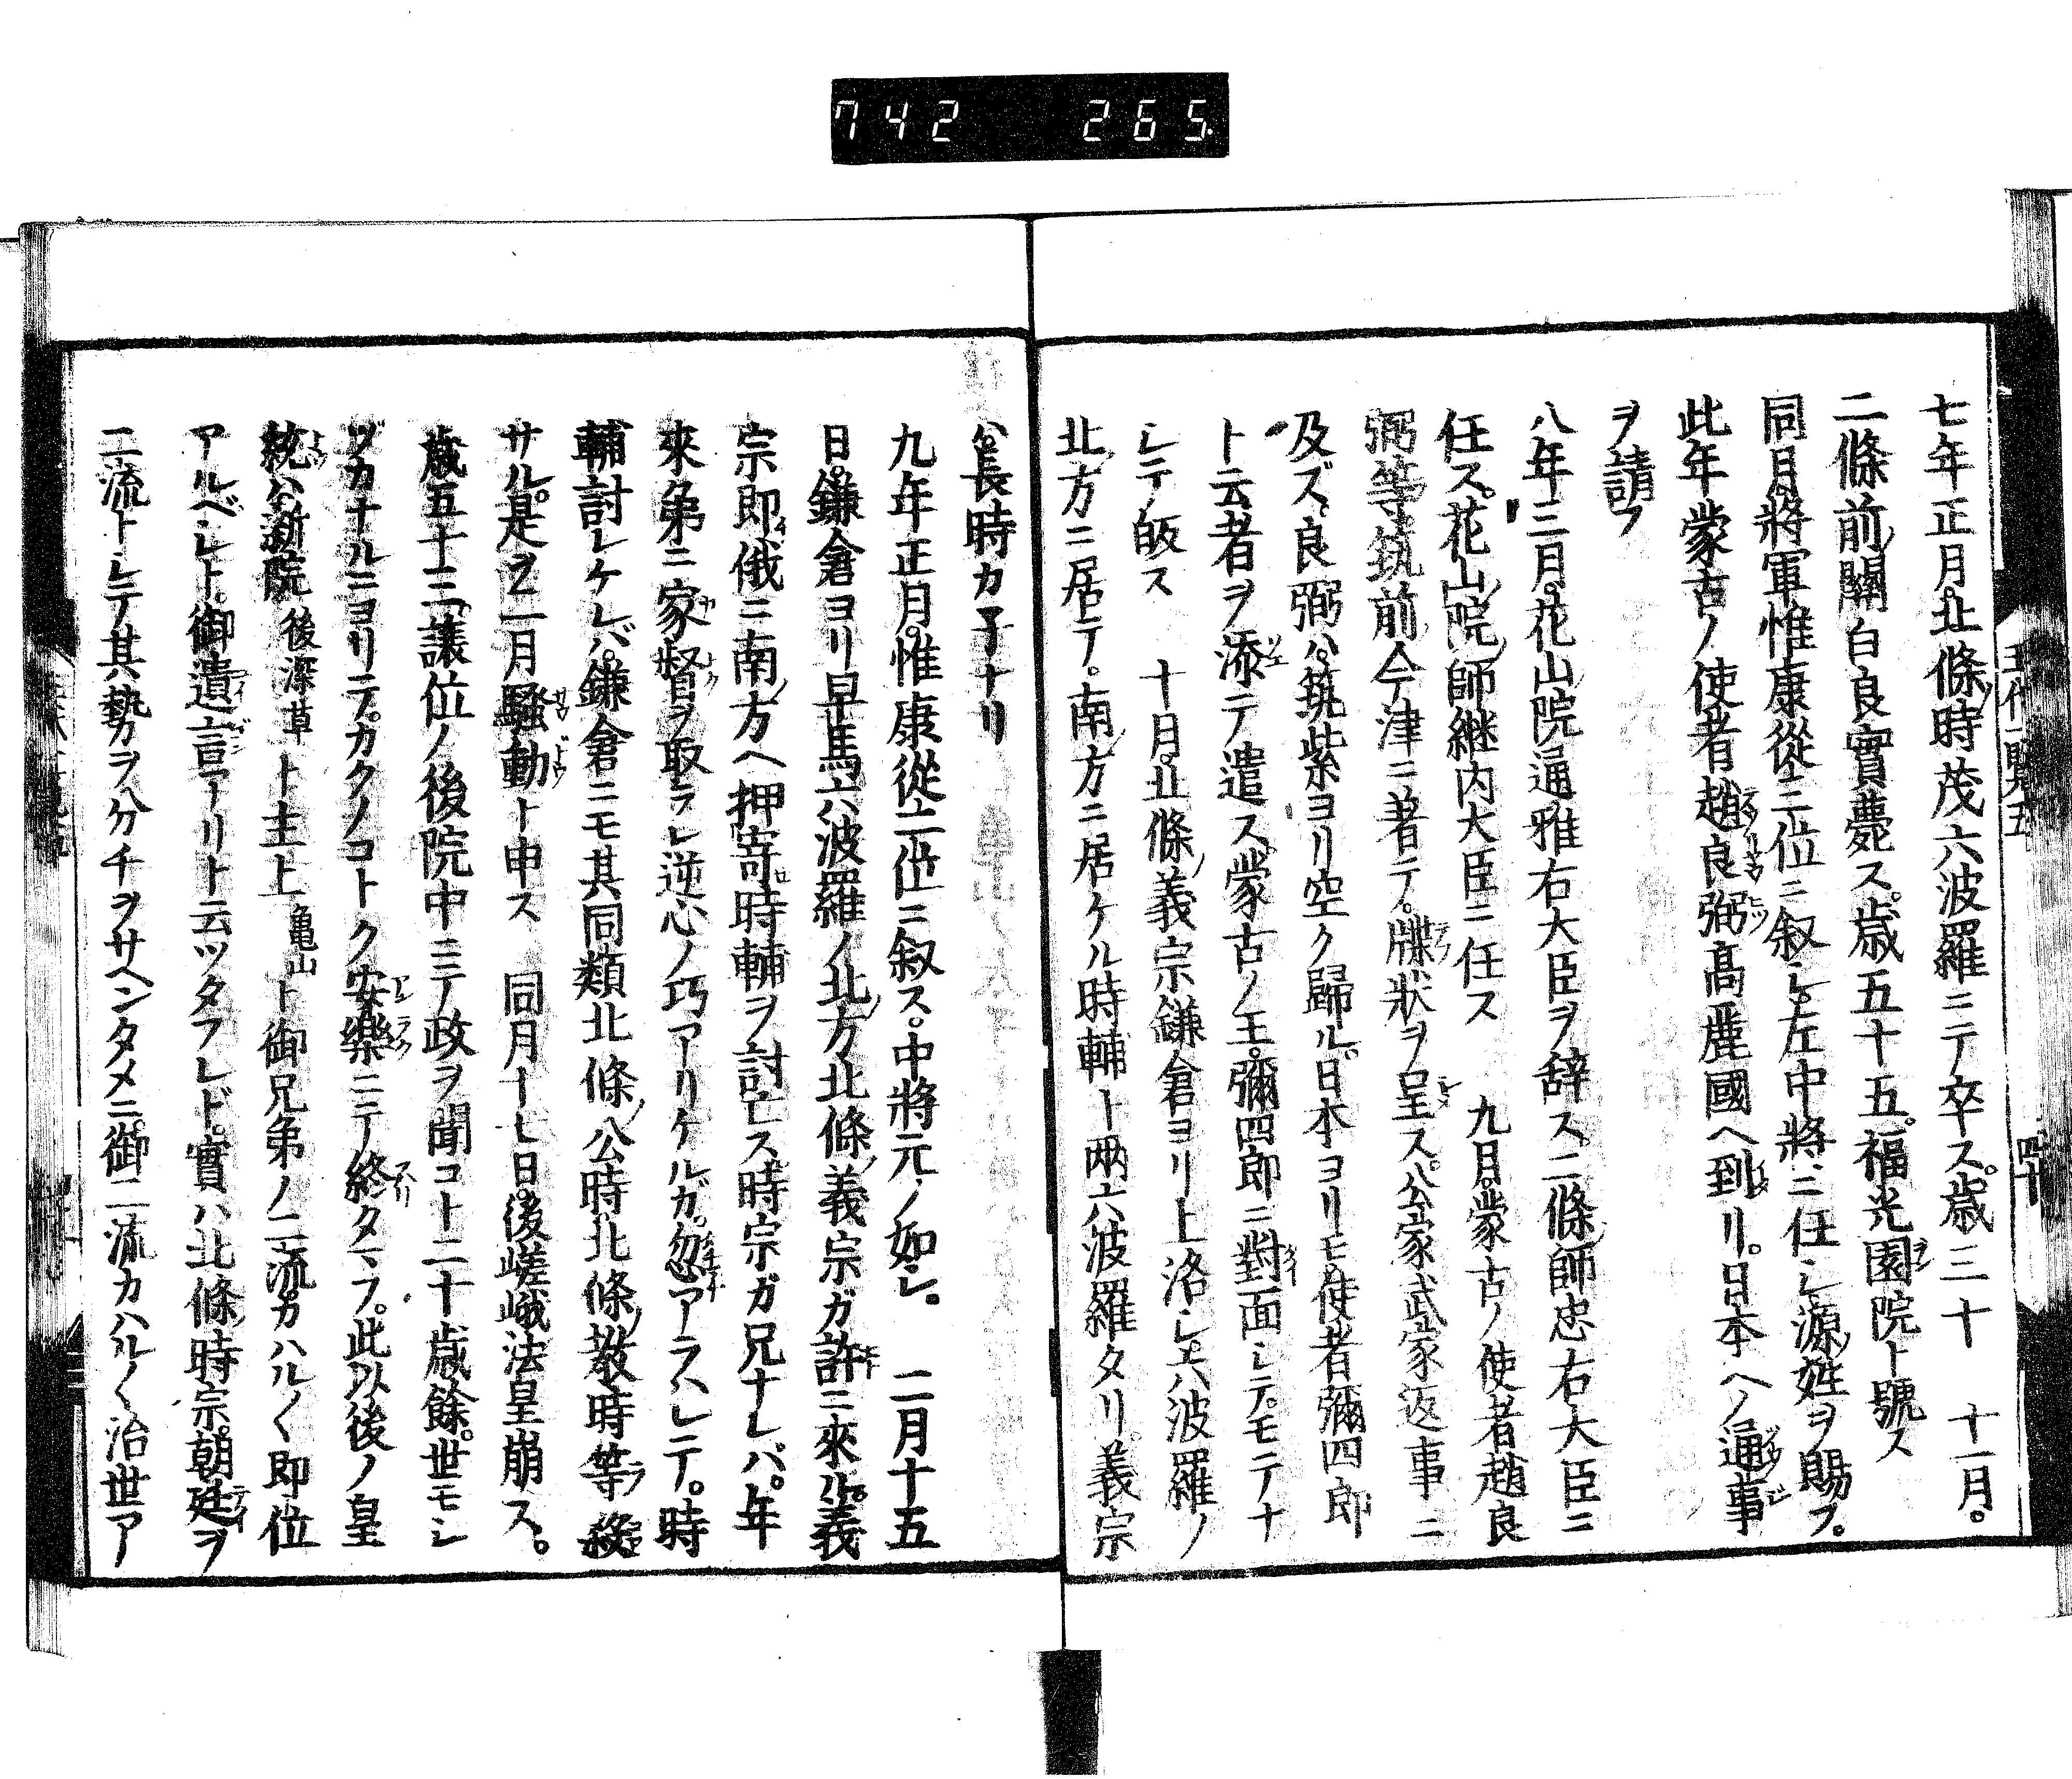 742 265
七年正月。北條時茂六波羅ニテ卒ス。歳三十 十一月。
二條前關白良實薨ス。歳五十五。福光園院ト號ス
同月將軍惟康從二位ニ叙シ。左中將ニ任シ源姓ヲ賜フ。
此年蒙古ノ使者趙良弼高麗國ヘ到リ。日本ヘノ通事
ヲ請フ
八年三月。花山院通雅右大臣ヲ辞ス。二條師忠右大臣ニ
任ス。花山院師継内大臣ニ任ス 九月。蒙古ノ使者趙良
弼等筑前今津ニ著テ。牒狀ヲ呈ス。公家武家返事ニ
及ズ。良弼ハ。筑紫ヨリ空ク歸ル。日本ヨリモ。使者彌四郎
ト云者ヲ添テ遣ス。蒙古ノ王。彌四郎ニ對面シテ。モテナ
シテ皈ス 十月。北條義宗鎌倉ヨリ上洛シ。六波羅ノ
北方ニ居テ。南方ニ居ケル時輔ト兩六波羅タリ。義宗
ハ。長時カ子ナリ
九年正月。惟康從二位ニ叙ス。中將元ノ如シ。 二月十五
日。鎌倉ヨリ早馬六波羅ノ北方北條義宗ガ許ニ來ル。義
宗即俄ニ南方ヘ押寄時輔ヲ討亡ス。時宗ガ兄ナレバ。年
來弟ニ家督ヲ取ラレ逆心ノ巧アリケルガ。忽アラハレテ。時
輔討レケレバ。鎌倉ニモ其同類北條公時北條教時等殺
サル。是ヲ二月騒動ト申ス 同月十七日。後嵯峨法皇崩ス。
歳五十三。譲位ノ後院中ニテ政ヲ聞コト二十歳餘。世モシ
ヅカナルニヨリテ。カクノコトク安樂ニテ終タマフ。此以後ノ皇
統ハ。新院後深草ト主上亀山ト御兄弟ノ二流カハル〱即位
アルベシト。御遺言アリト云ツタフレド。實ハ北條時宗。朝廷ヲ
二流トシテ其勢ヲ分チヲサヘンタメニ。御二流カハル〱治世ア
王代一覽五
四十